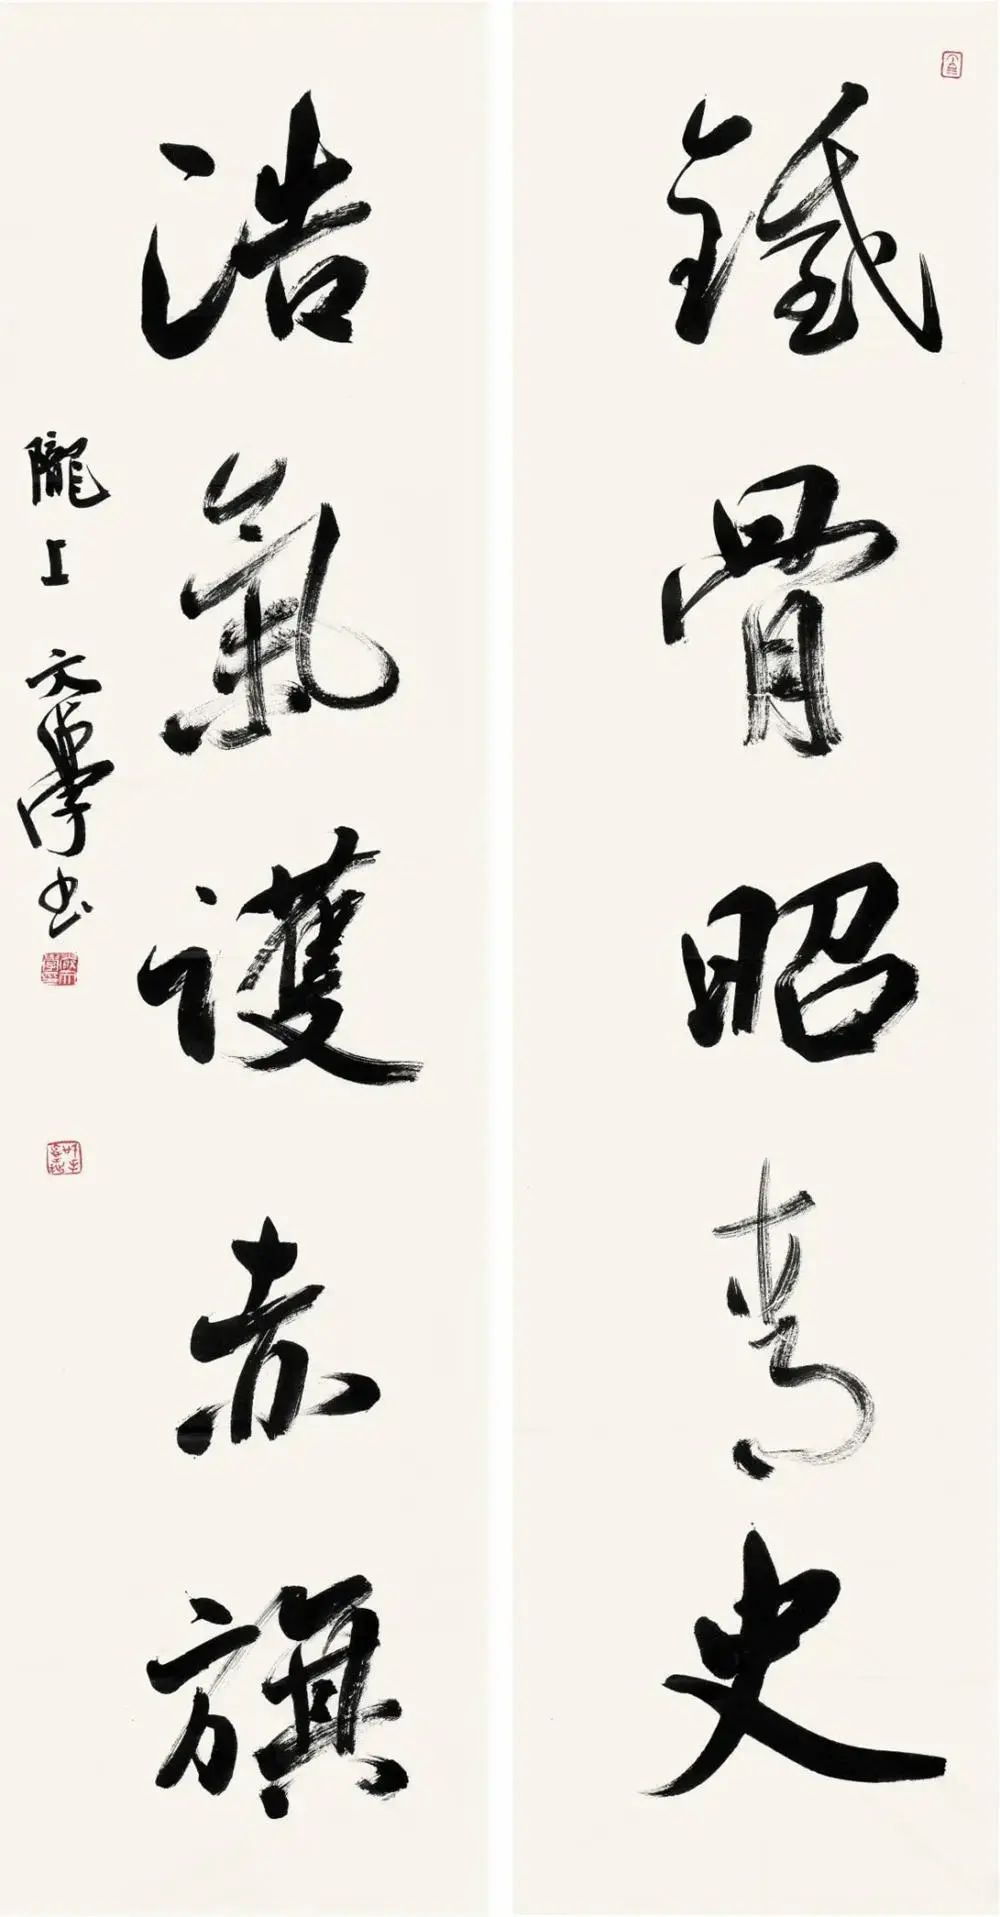 鐵骨昭青史
浩氣護赤旗
隴上文學书